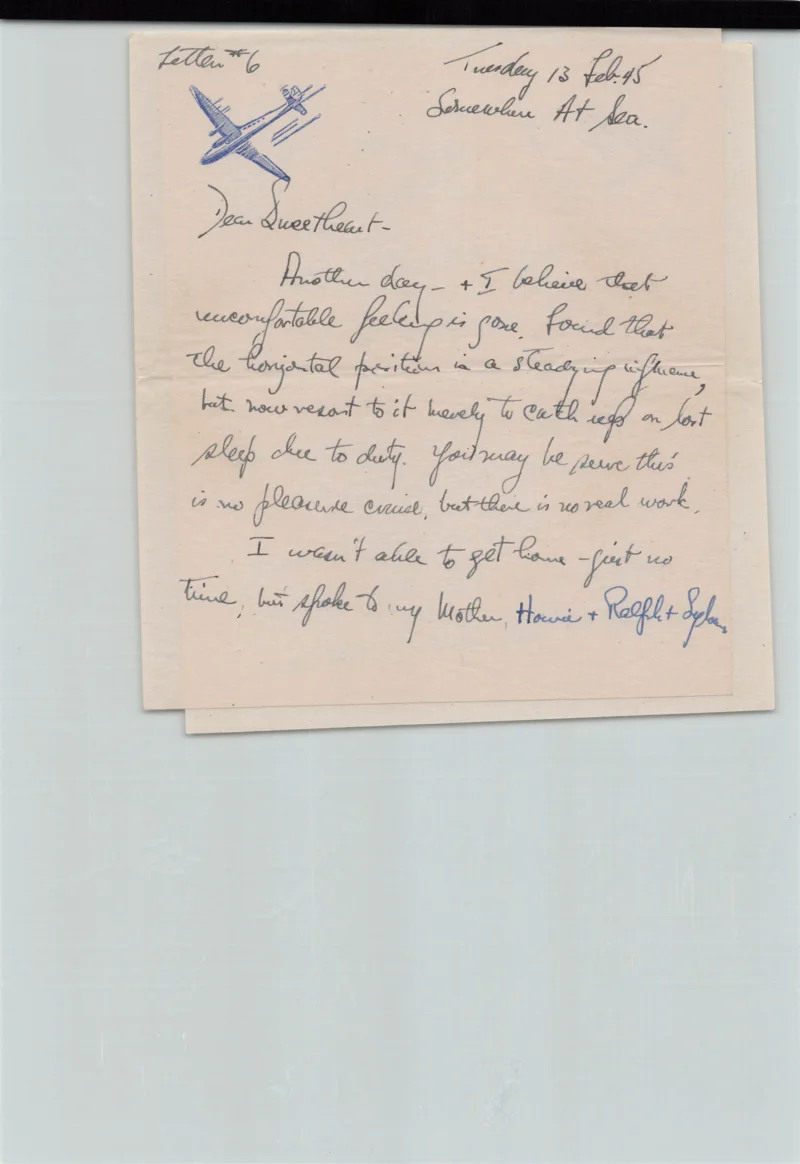 Letter #6
Tuesday 13 Feb. 45
Somewhere At Sea.
Dear Sweetheart -
Another day - + I believe that
uncomfortable feeling is gone. Found that
the horizontal position is a steadying influence,
but now resort to it merely to catch up on lost
sleep due to duty. You may be sure this
is no pleasure cruise, but there is no real work.
I wasn't able to get home - just no
time, but spoke to my Mother, Howie + Ralph +